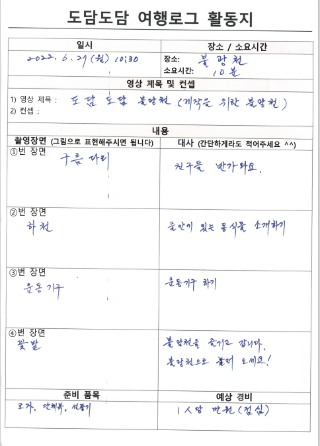 도담도담 여행로그 활동지
일시
장소 / 소요시간
2022. 6. 29 (월) 10:30
장소: 불광천
소요시간: 10분
영상 제목 및 컨셉
1) 영상 제목 : 도담도담 불광천 (계작을 위한 불광천)
2) 컨셉 :
내용
촬영장면 (그림으로 표현해주시면 됩니다)
대사 (간단하게라도 적어주세요 ^^)
①번 장면
구름다리
친구들 반가워요.
②번 장면
하천
곳곳이 있는 동식물 소개하기
③번 장면
운동기구
운동기구 하기
④번 장면
꽃밭
불광천을 즐기고 갑니다.
불광천으로 놀러 오세요!
준비 품목
예상 경비
모자, 단체복, 선풍기
1人당 만원 (점심)